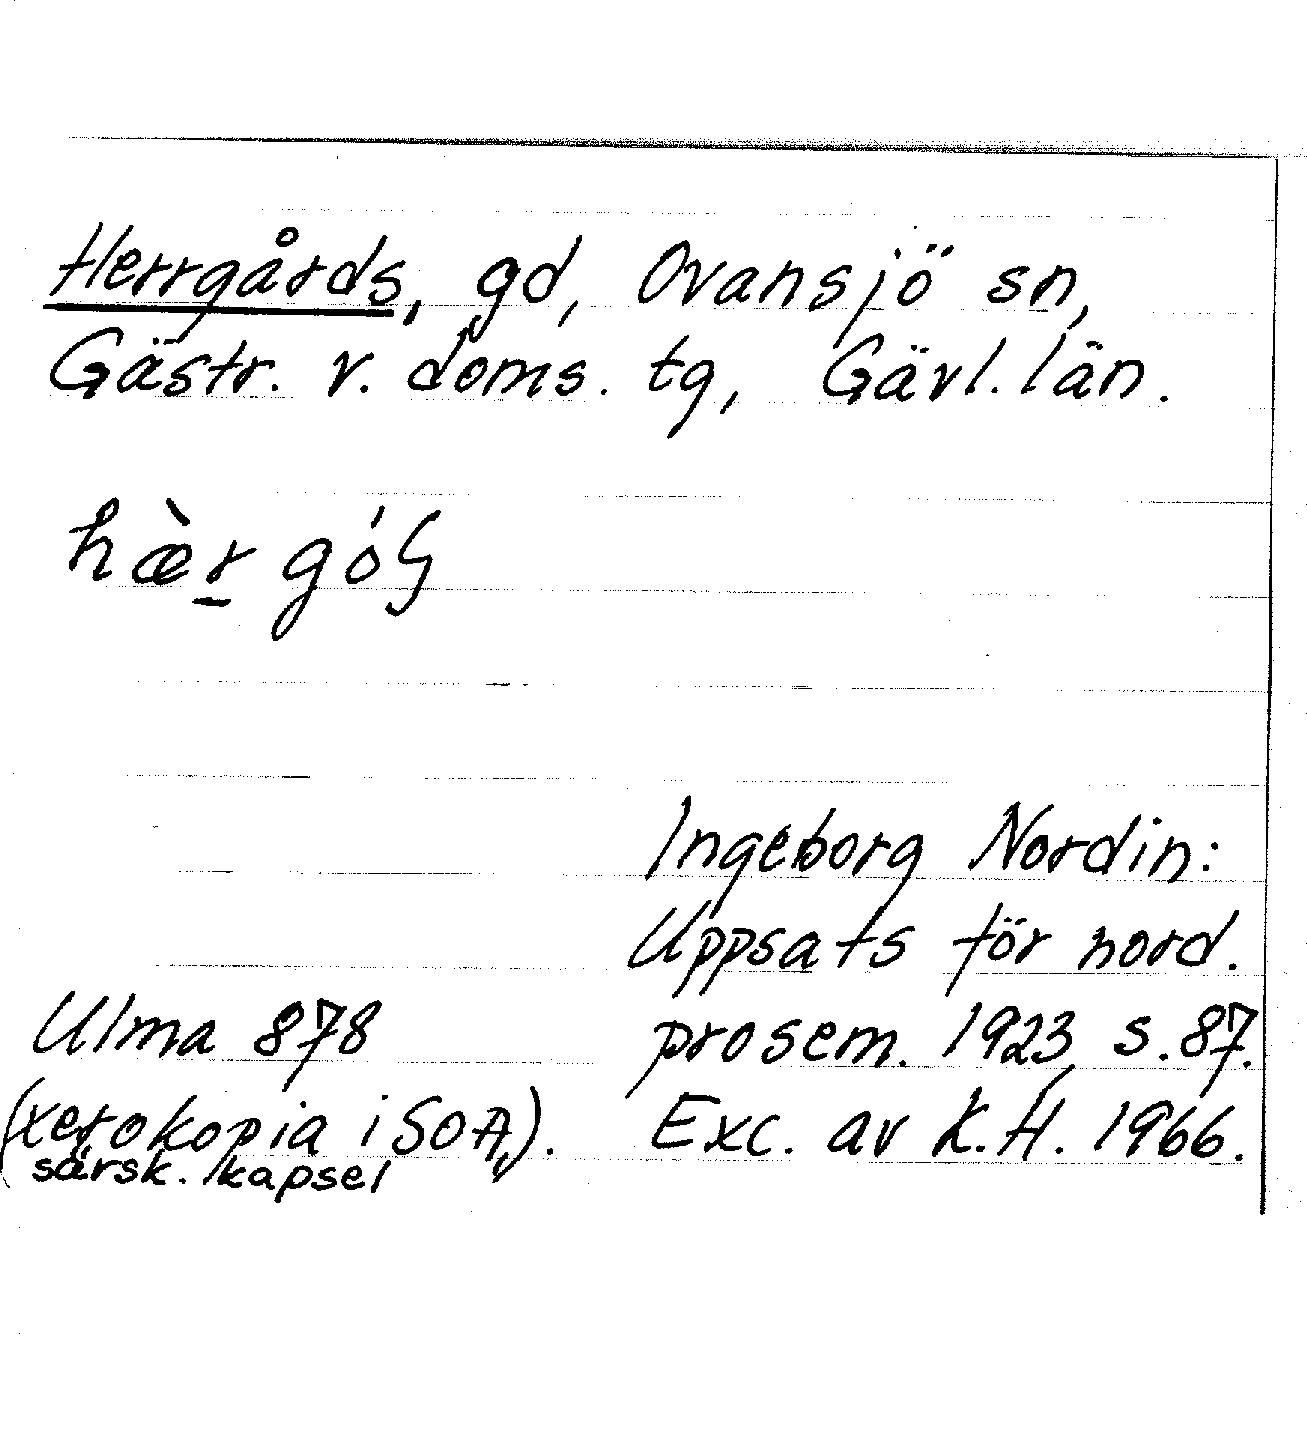 Herrgårds, gd, Ovansjö sn,
Gästr. v. doms. tg, Gävl. län.
Ingeborg Nordin:
Uppsats för nord.
prosem. 1923, s. 87.
Exc. av K.H. 1966.
Ulma 878
(xerokopia i SOA,).
särsk. kapsel